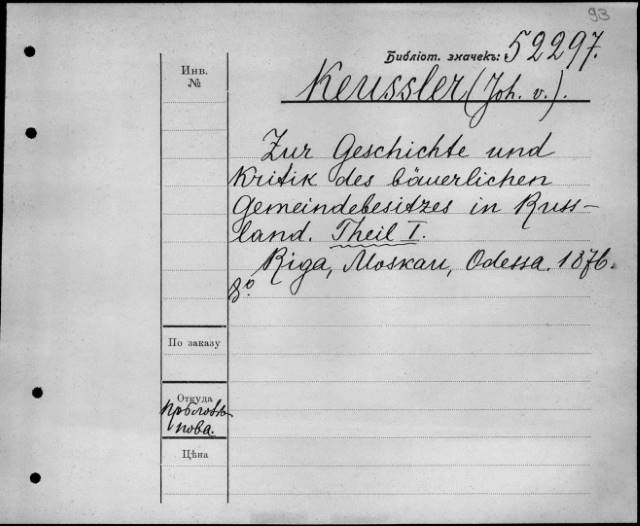 93
Библіот. значекъ: 52297.
Инв.
№
Keussler (Joh. v.).
Zur Geschichte und
Kritik des bäuerlichen
Gemeindebesitzes in Russ-
land. Theil I.
Riga, Moskau, Odessa. 1876.
8º
По заказу
Откуда
Цѣна